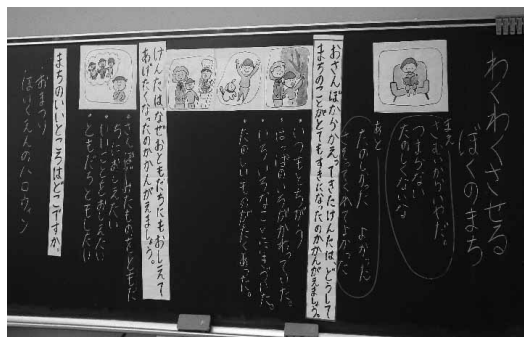 わくわくさせる
ぼくのまち
まえ
さむいからいやだな。
つまらない
たのしくないな
あと
たのしかった よかった
おさんぽからかえってきたけんたは、どうして
まちのことがとてもすきになったのかかんがえましょう。
・いつもとちがう
・はっぱのいろがかわっていた。
・いろいろなことにきづいた。
・たのしいものがたくさんあった。
けんたは、なぜおともだちにもおしえて
あげたくなったのかかんがえましょう。
・さんぽでみたものをともだ
ちにおしえたい
・いいことをおしえたい
・ともだちともしたい
まちのいいところはどこですか。
・おまつり
・ほいくえんのハロウィン